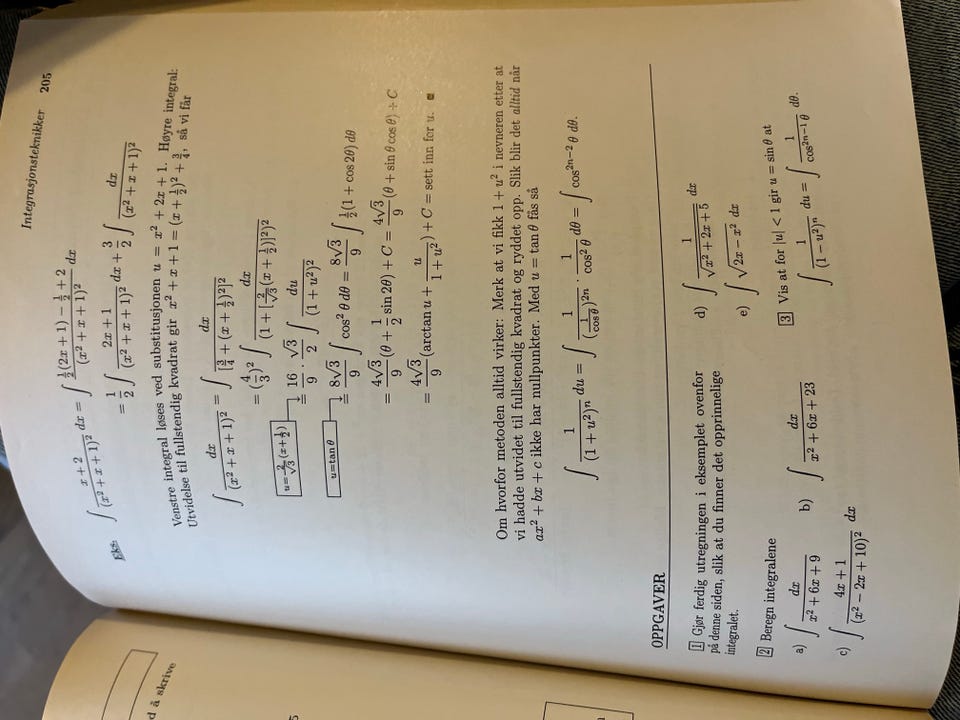 Integrasjonsteknikker 205
Eks: ∫ (x + 2)/(x² + x + 1)² dx = ∫ (½(2x + 1) − ½ + 2)/(x² + x + 1)² dx
= 1/2 ∫ (2x + 1)/(x² + x + 1)² dx + 3/2 ∫ dx/(x² + x + 1)²
Venstre integral løses ved substitusjonen u = x² + 2x + 1. Høyre integral:
Utvidelse til fullstendig kvadrat gir x² + x + 1 = (x + ½)² + ¾, så vi får
∫ dx/(x² + x + 1)² = ∫ dx/[¾ + (x + ½)²]²
= (4/3)² ∫ dx/(1 + [2/√3 (x + ½)]²)²
u = 2/√3 (x+½) = 16/9 · √3/2 ∫ du/(1 + u²)²
u=tan θ = 8√3/9 ∫ cos² θ dθ = 8√3/9 ∫ ½(1 + cos 2θ) dθ
= 4√3/9 (θ + 1/2 sin 2θ) + C = 4√3/9 (θ + sin θ cos θ) + C
= 4√3/9 (arctan u + u/(1 + u²)) + C = sett inn for u.
Om hvorfor metoden alltid virker: Merk at vi fikk 1 + u² i nevneren etter at
vi hadde utvidet til fullstendig kvadrat og ryddet opp. Slik blir det alltid når
ax² + bx + c ikke har nullpunkter. Med u = tan θ fås så
∫ 1/(1 + u²)ⁿ du = ∫ 1/(1/cos θ)²ⁿ · 1/cos² θ dθ = ∫ cos²ⁿ⁻² θ dθ.
OPPGAVER
1 Gjør ferdig utregningen i eksemplet ovenfor
på denne siden, slik at du finner det opprinnelige
integralet.
2 Beregn integralene
a) ∫ dx/(x² + 6x + 9) b) ∫ dx/(x² + 6x + 23)
c) ∫ (4x + 1)/(x² − 2x + 10)² dx
d) ∫ 1/√(x² + 2x + 5) dx
e) ∫ √(2x − x²) dx
3 Vis at for |u| < 1 gir u = sin θ at
∫ 1/(1 − u²)ⁿ du = ∫ 1/cos²ⁿ⁻¹ θ dθ.
d å skrive